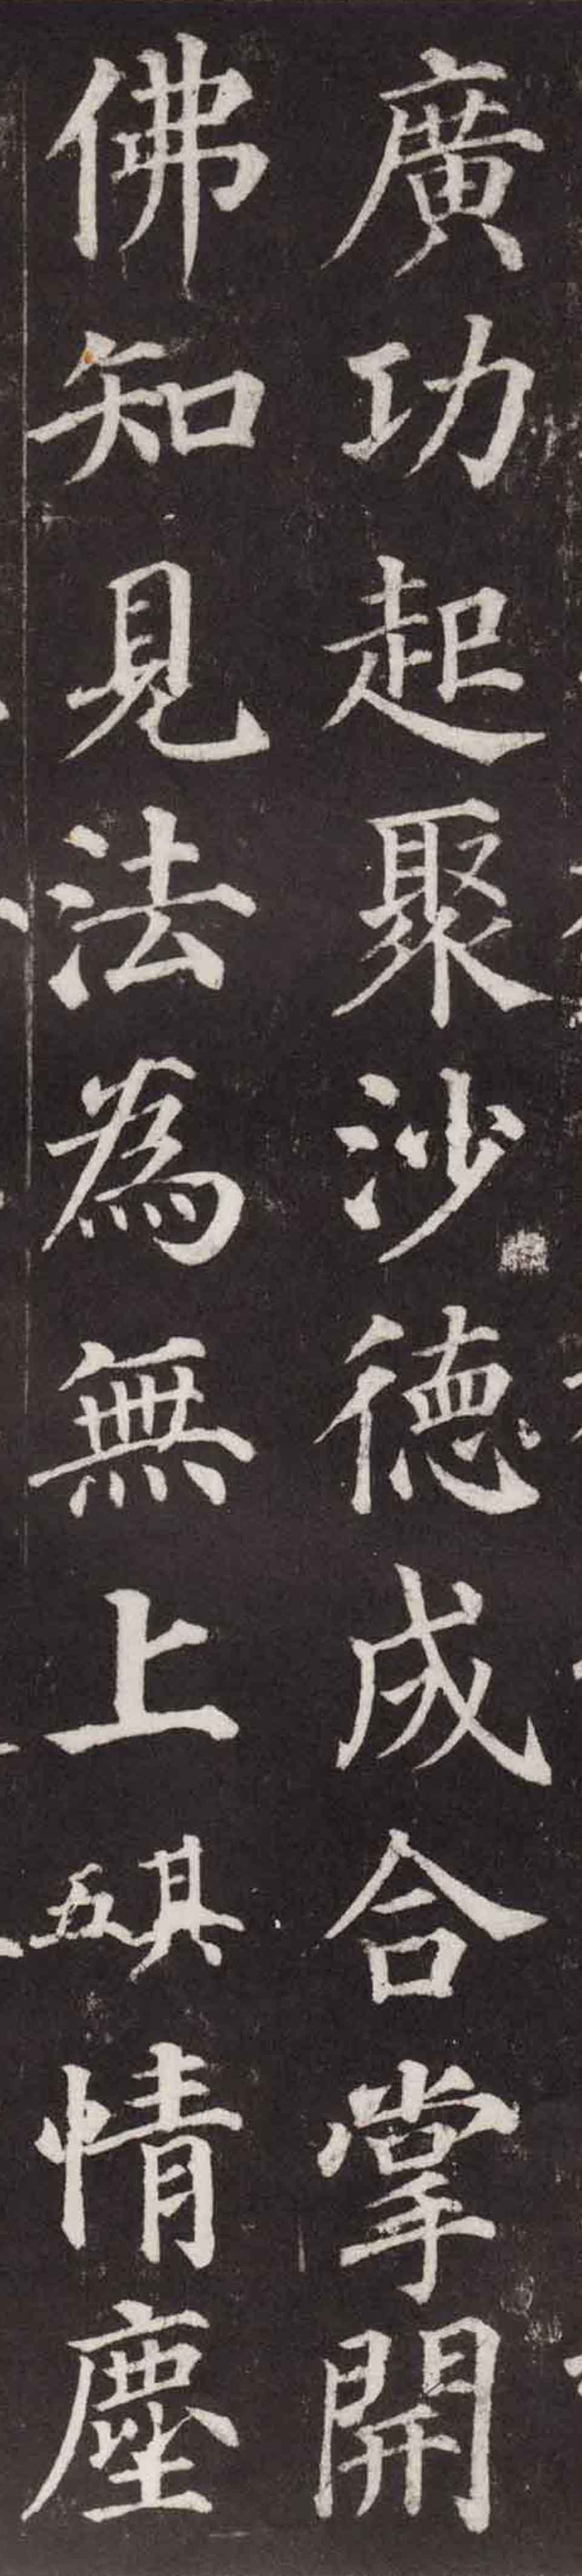 廣功起聚沙德成合掌開
佛知見法為無上其五情塵